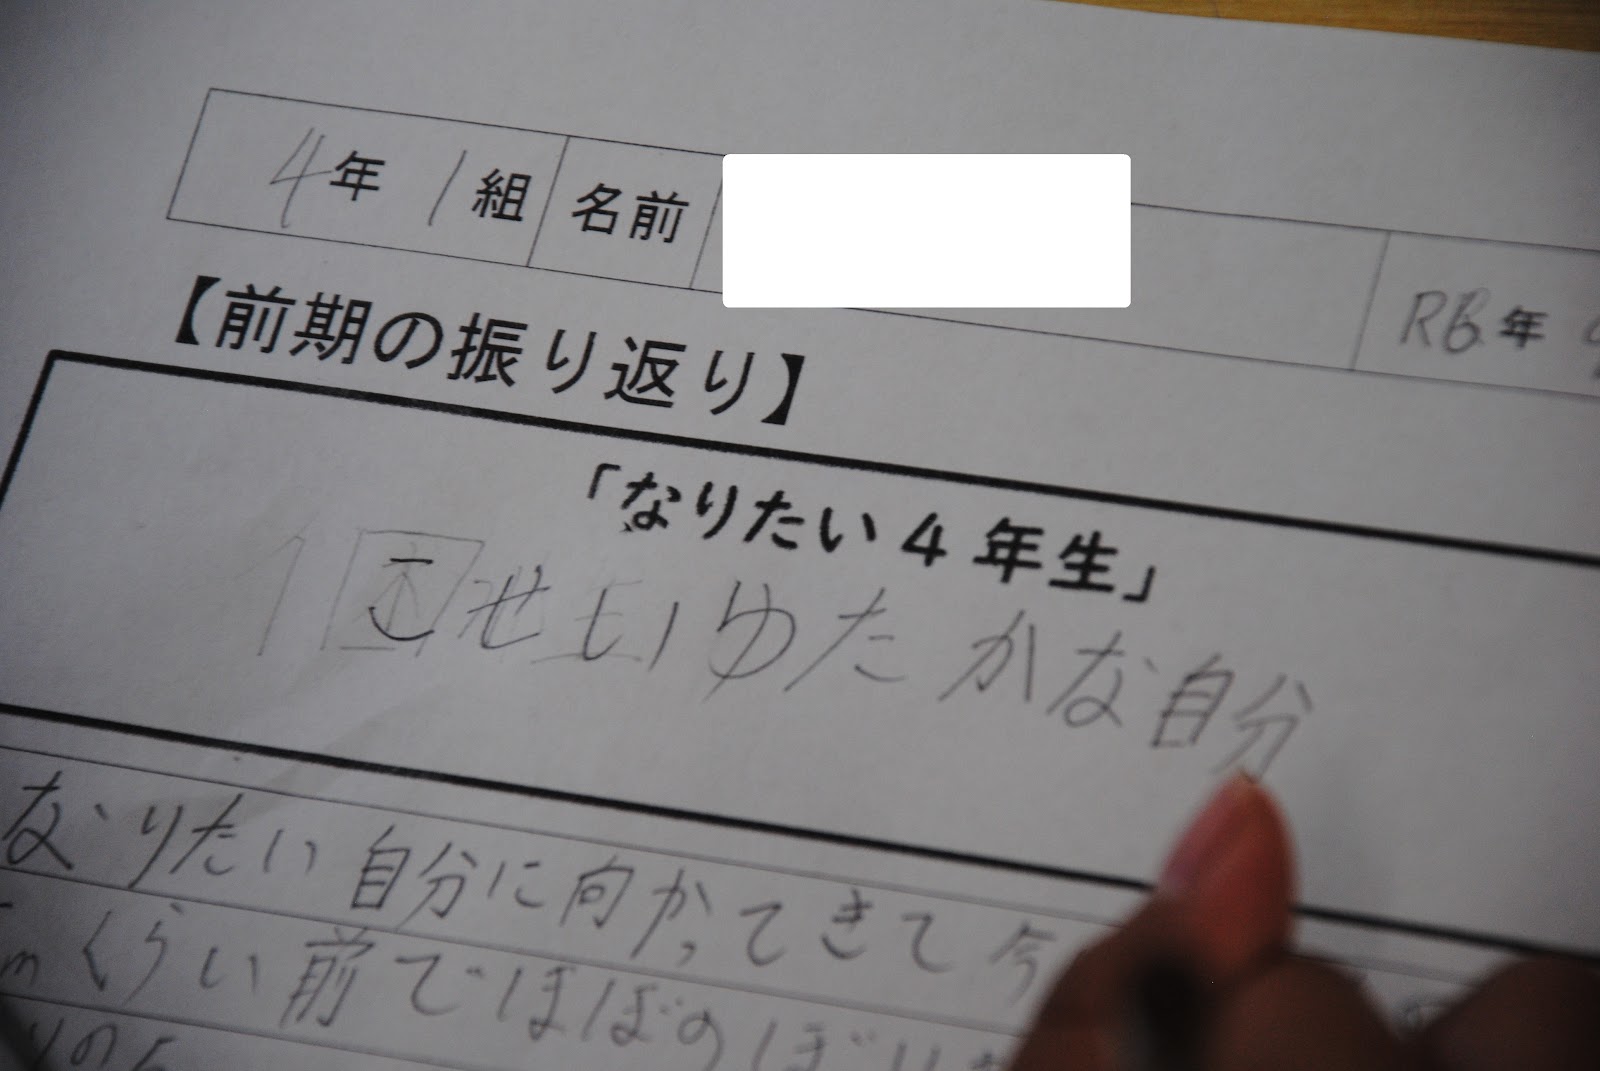 4年 1組 名前 年
【前期の振り返り】
「なりたい4年生」
こせいゆたかな自分
なりたい自分に向かってきて今
mくらい前でほぼのぼり